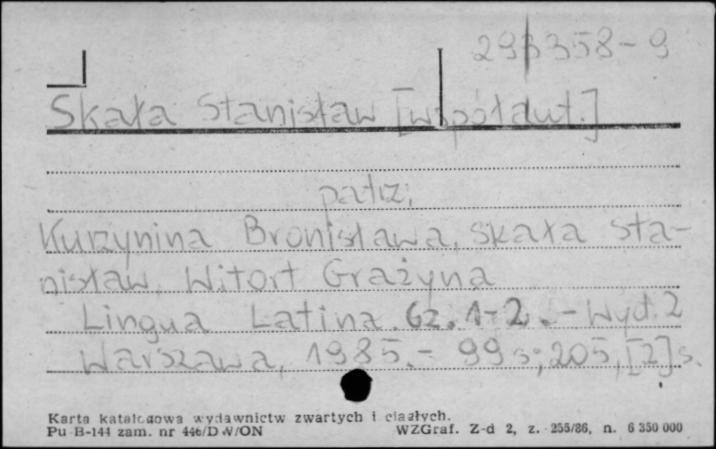 293358-9
Skała Stanisław [współaut.]
patrz:
Kurzynina Bronisława, Skała Sta-
nisław, Witort Grażyna
Lingua Latina. Cz. 1-2. - Wyd. 2
Warszawa, 1985.- 99 s.; 205, [2] s.
Karta katalogowa wydawnictw zwartych i ciągłych.
Pu B-144 zam. nr 446/DW/ON WZGraf. Z-d 2, z. 255/86, n. 6 350 000